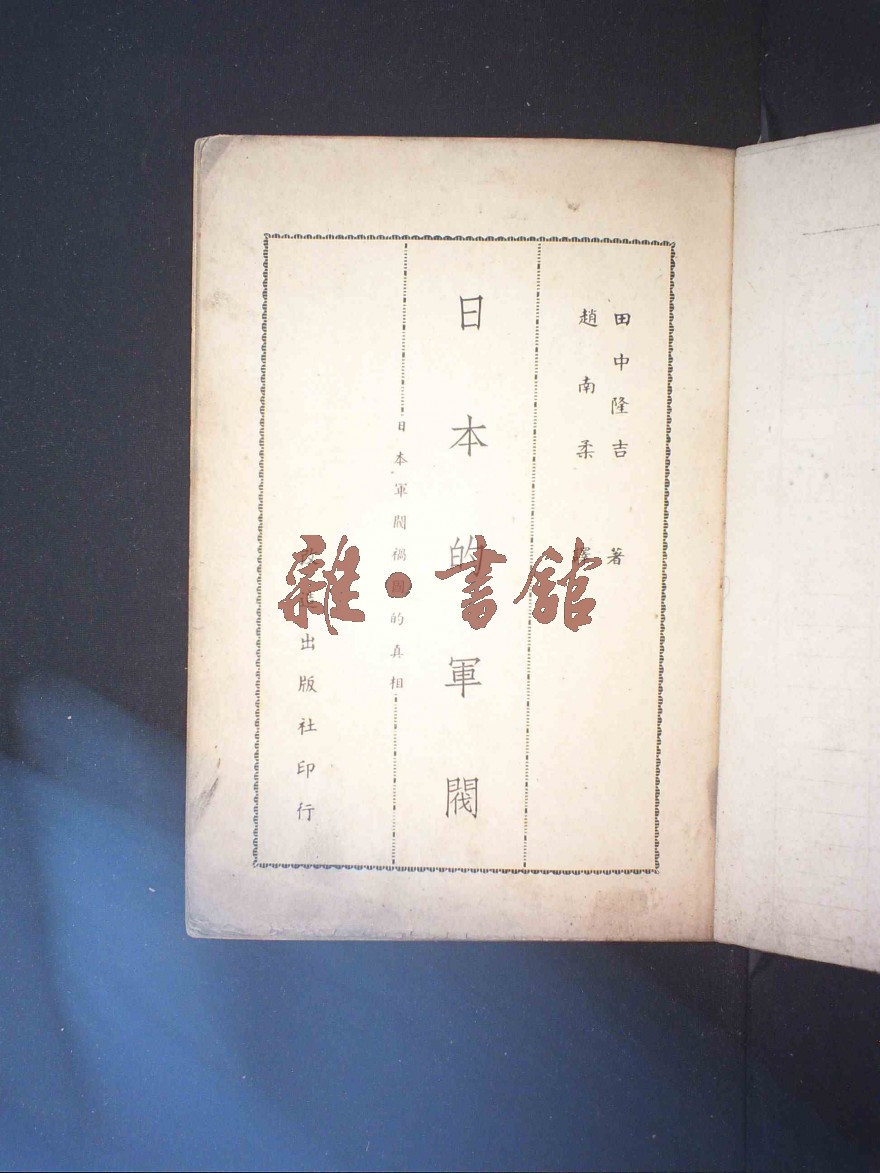 田中隆吉 著
趙南柔 譯
日本的軍閥
日本軍閥禍國的真相
出版社印行
雜·書館